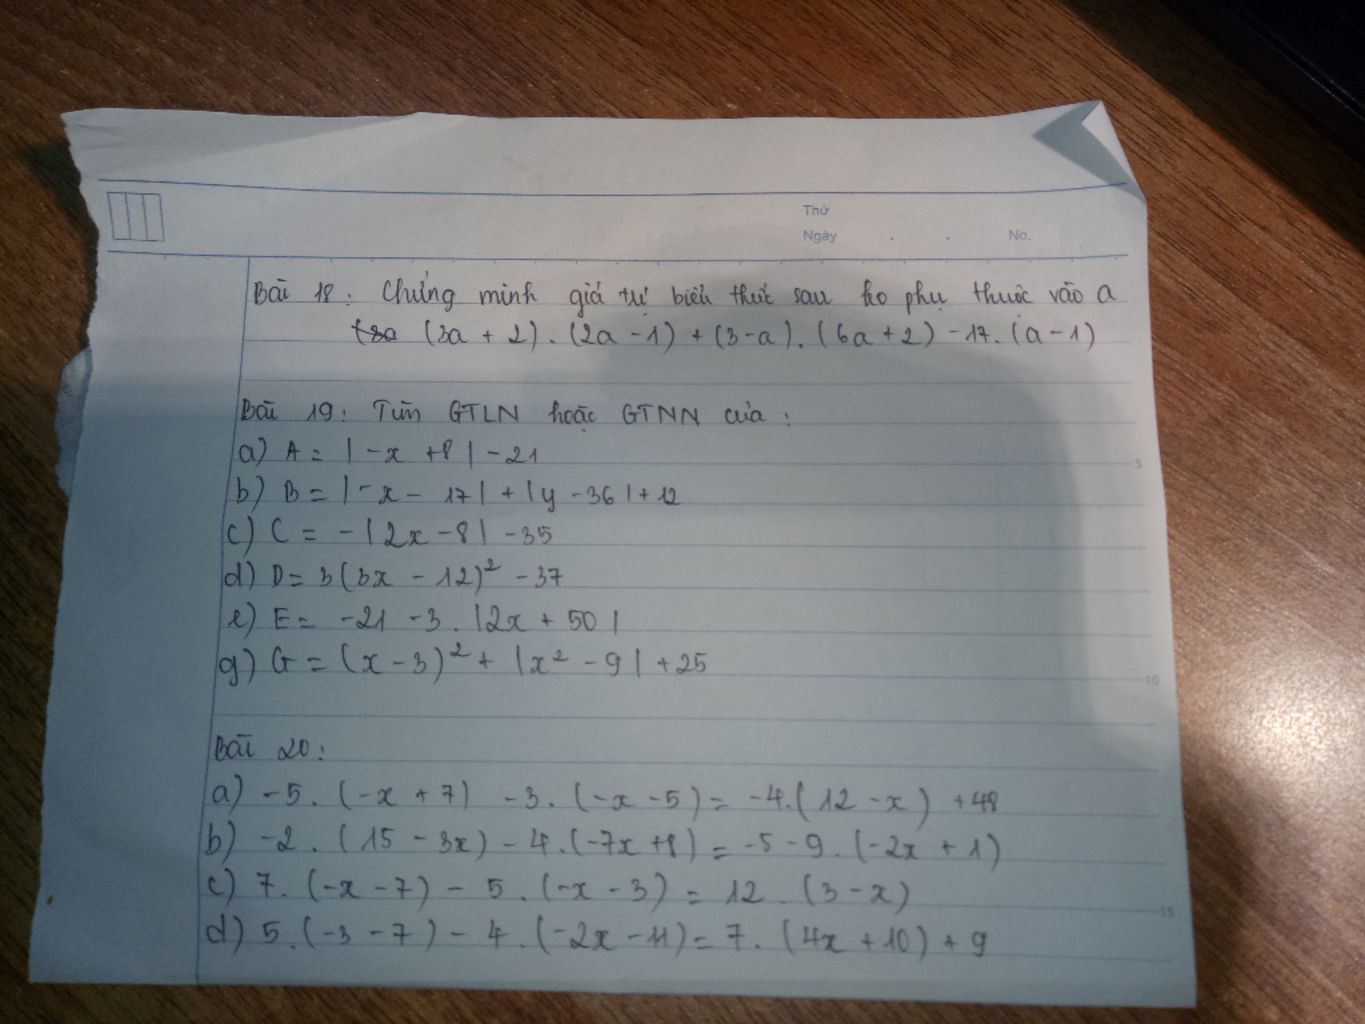 Thứ
Ngày . . No.
Bài 18 : Chứng minh giá trị biểu thức sau ko phụ thuộc vào a
(3a + 2) . (2a - 1) + (3 - a) . (6a + 2) - 17 . (a - 1)
Bài 19 : Tìm GTLN hoặc GTNN của :
a) A = | -x + 8 | - 21
5
b) B = | -x - 17 | + | y - 36 | + 12
c) C = - | 2x - 8 | - 35
d) D = 3(3x - 12)² - 37
e) E = -21 - 3 . |2x + 50 |
g) G = (x - 3)² + | x² - 9 | + 25
10
Bài 20 :
a) -5 . (-x + 7) - 3 . (-x - 5) = -4.(12 - x) + 48
b) -2 . (15 - 3x) - 4 . (-7x + 8) = -5 - 9 . (-2x + 1)
c) 7 . (-x - 7) - 5 . (-x - 3) = 12 . (3 - x)
15
d) 5 . (-3 - 7) - 4 . (-2x - 11) = 7 . (4x + 10) + 9